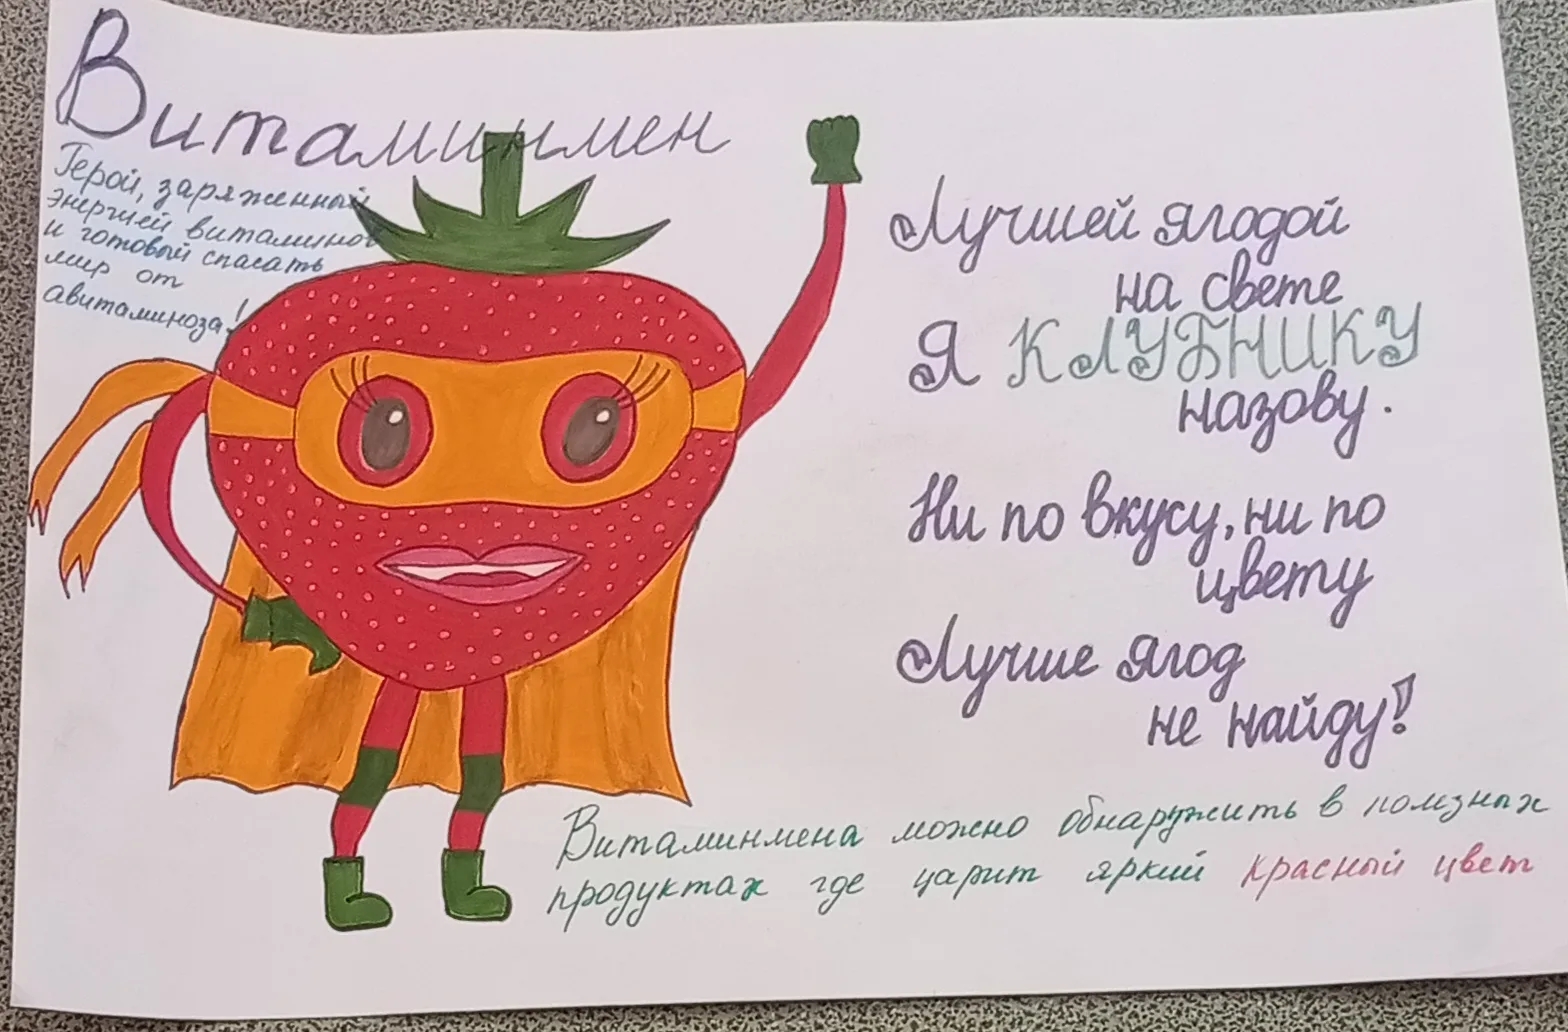 Витаминмен
Герой, заряженный
энергией витаминов
и готовый спасать
мир от
авитаминоза!
Лучшей ягодой
на свете
Я КЛУБНИКУ
назову.
Ни по вкусу, ни по
цвету
Лучше ягод
не найду!
Витаминмена можно обнаружить в полезных
продуктах где царит яркий красный цвет